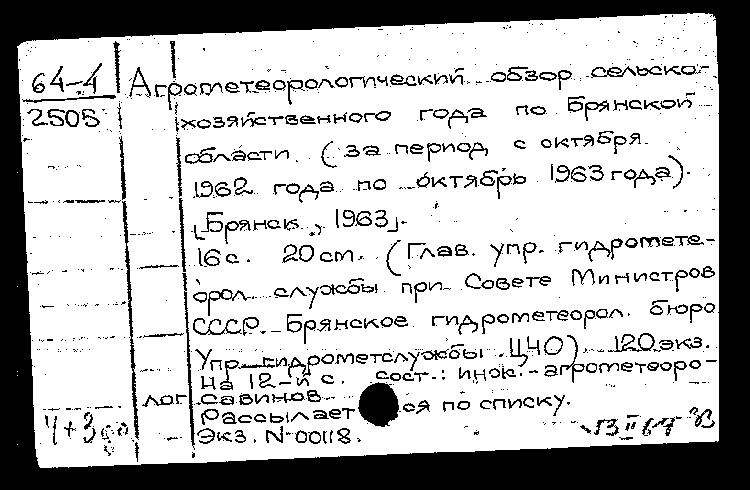 64-4 Агрометеорологический обзор сельско-
2505 хозяйственного года по Брянской
области (за период с октября
1962 года по октябрь 1963 года).
[Брянск, 1963].
16 с. 20 см. (Глав. упр. гидромете-
орол. службы при Совете Министров
СССР. Брянское гидрометеорол. бюро
Упр. гидрометслужбы ЦЧО). 120 экз.
На 12-й с. сост.: инж.-агрометеоро-
лог Савинов
Рассылается по списку.
Экз. № 00118.